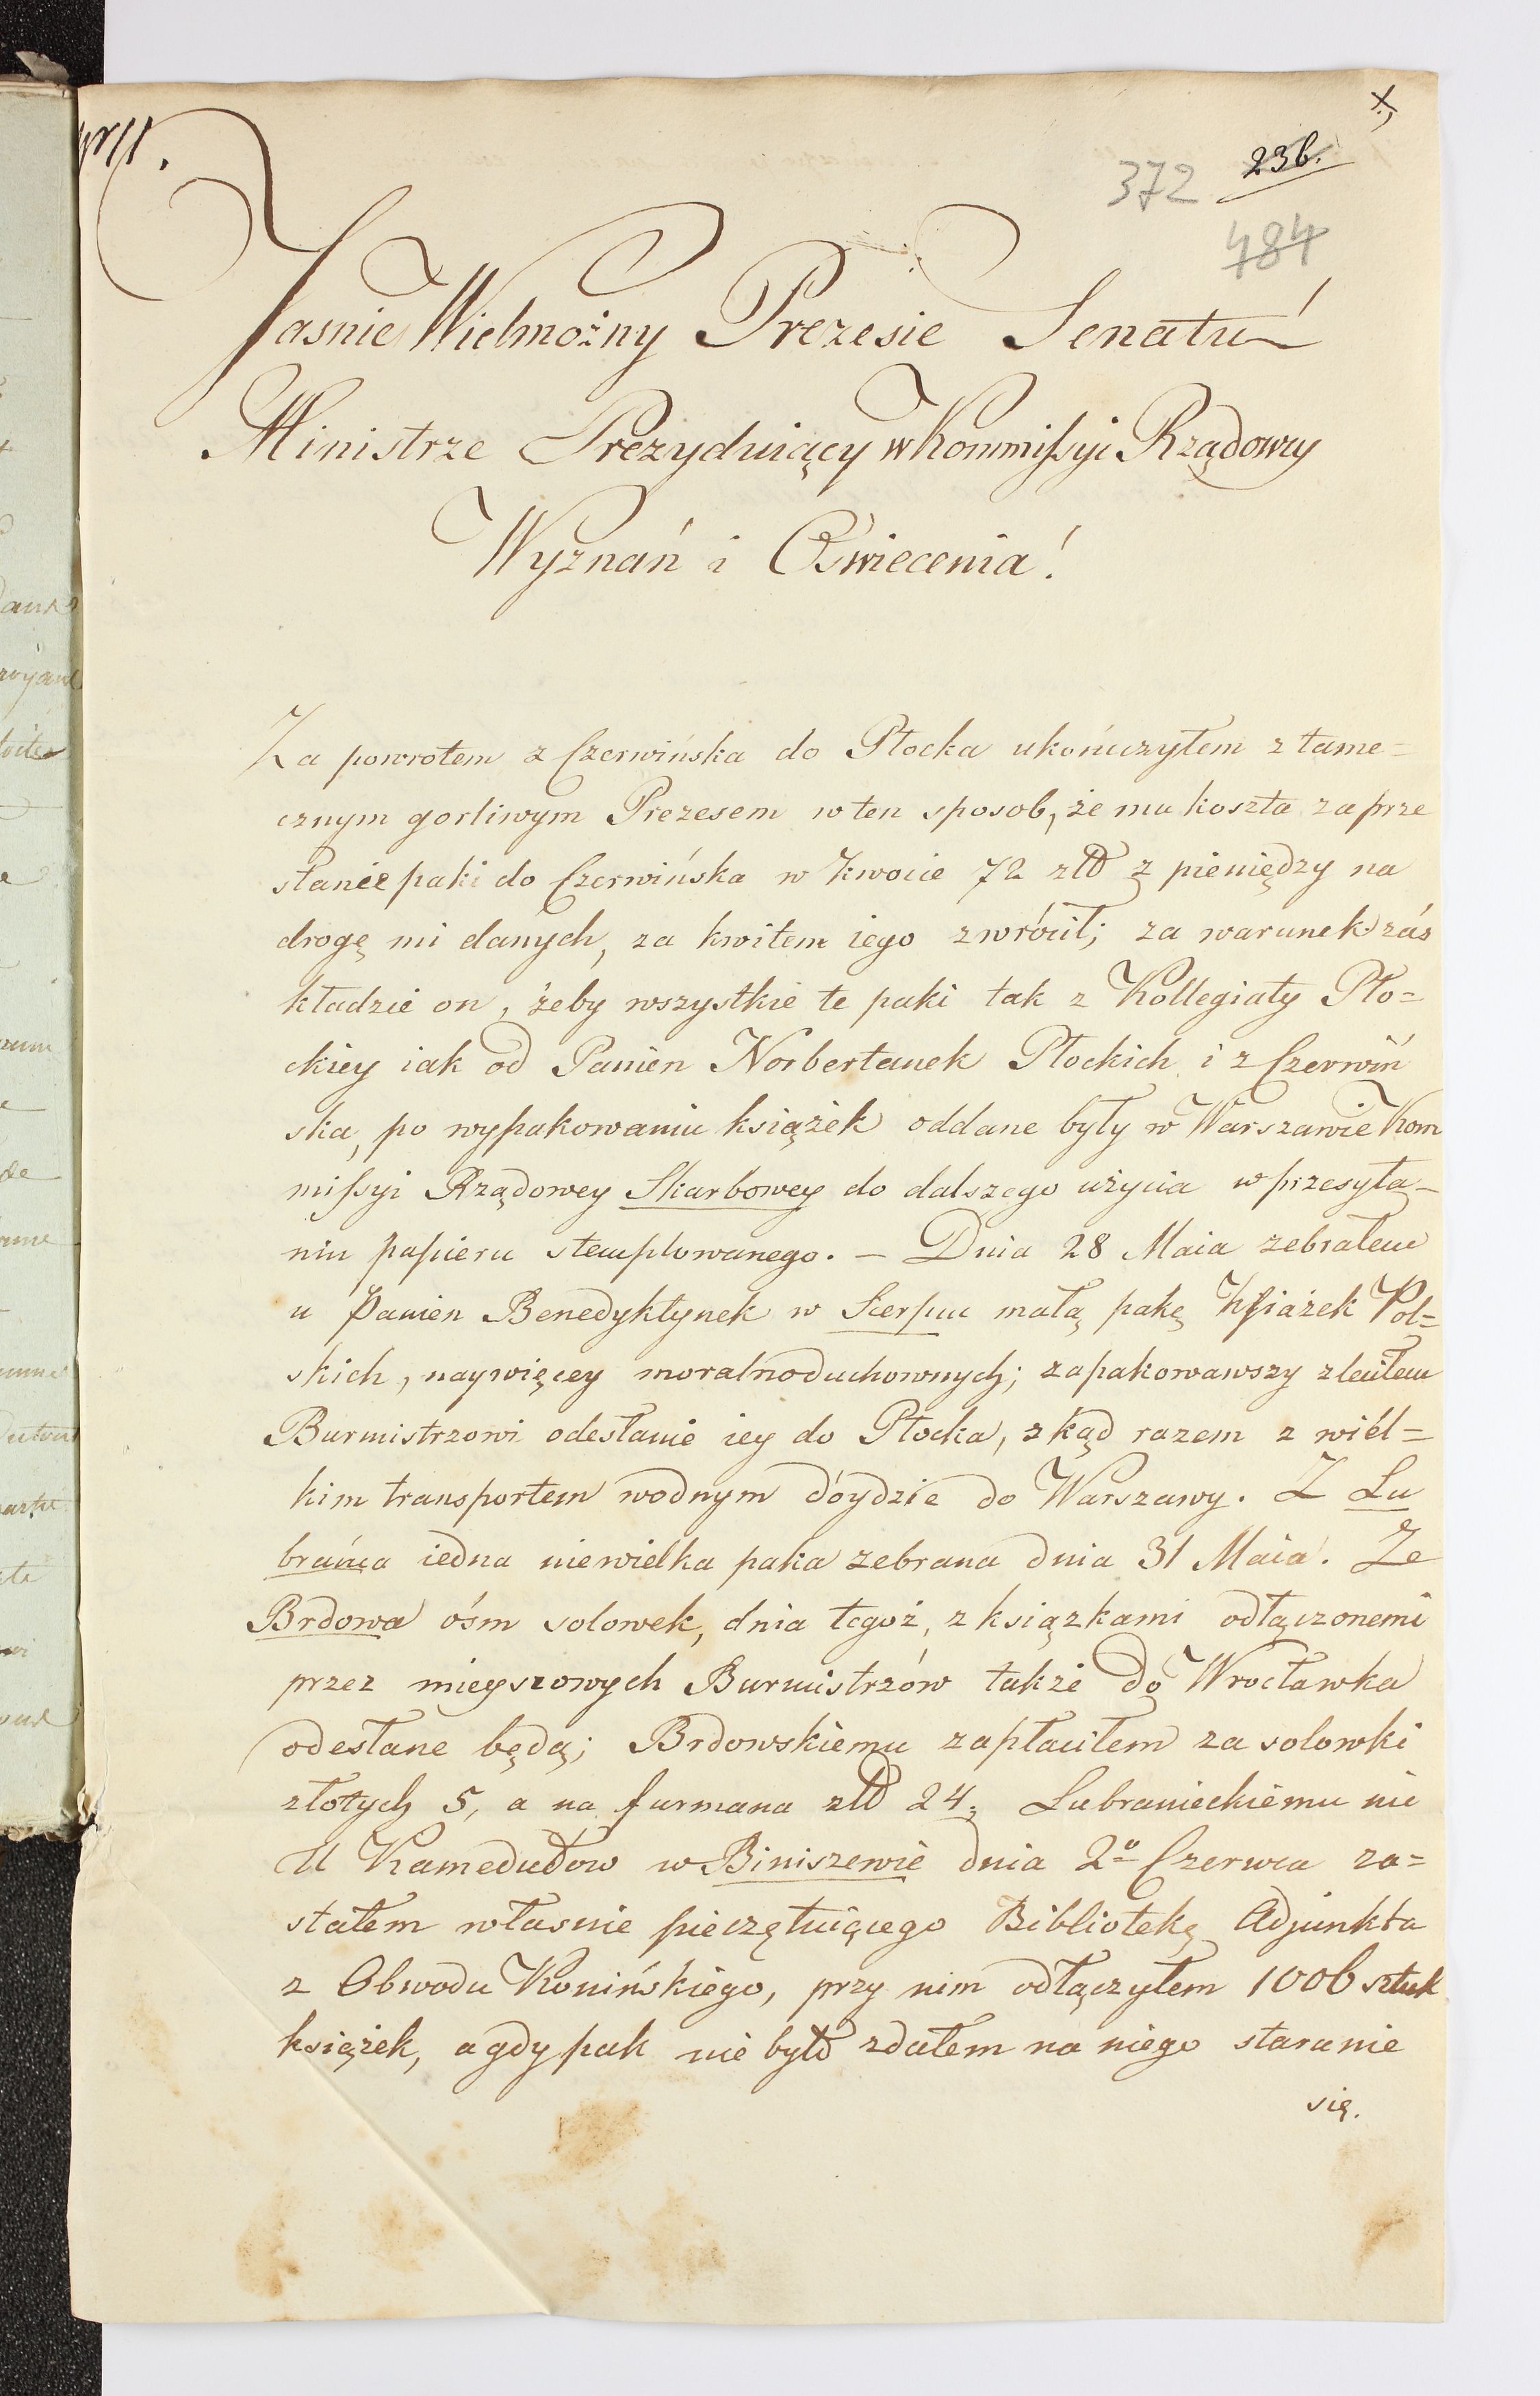 372 236.
484
Jasnie Wielmożny Prezesie Senatu
Ministrze Prezyduiący w Kommissyi Rządowey
Wyznań i Oświecenia!
Za powrotem z Czerwińska do Płocka ukończyłem z tame=
cznym gorliwym Prezesem w ten sposob, że mu koszta za prze
słanie paki do Czerwińska w kwocie 72 złł z pieniędzy na
drogę mi danych, za kwitem iego zwrócił; za warunek zás
kładzie on, żeby wszystkie te paki tak z Kollegiaty Pło=
ckiey iak od Panien Norbertanek Płockich i z Czerwiń
ska, po wypakowaniu książek oddane były w Warszawie Kom
missyi Rządowey Skarbowey do dalszego użycia w przesyła-
niu papieru stemplowanego. — Dnia 28 Maia zebrałem
u Panien Benedyktynek w Sierpcu małą pakę Xsiażek Pol=
skich, naywięcey moralnoduchownych; zapakowawszy zleciłem
Burmistrzowi odesłanie iey do Płocka, zkąd razem z wiel=
kim transportem wodnym dóydzie do Warszawy. Z Lu
brańca iedna niewielka paka zebrana dnia 31 Maia. Ze
Brdowa ośm solowek, dnia tegoż, z książkami odłączonemi
przez mieyscowych Burmistrzów także do Wrocławka
odesłane będą; Brdowskiemu zapłaciłem za solowki
złotych 5, a na furmana złł 24; Lubranieckiemu nic
U Kamedułow w Biniszewie dnia 2º Czerwca za=
stałem własnie pieczętuiącego Bibliotekę Adjunkta
z Obwodu Konińskiego, przy nim odłączyłem 1006 sztuk
książek, a gdy pak nie było zdałem na niego staranie
się.